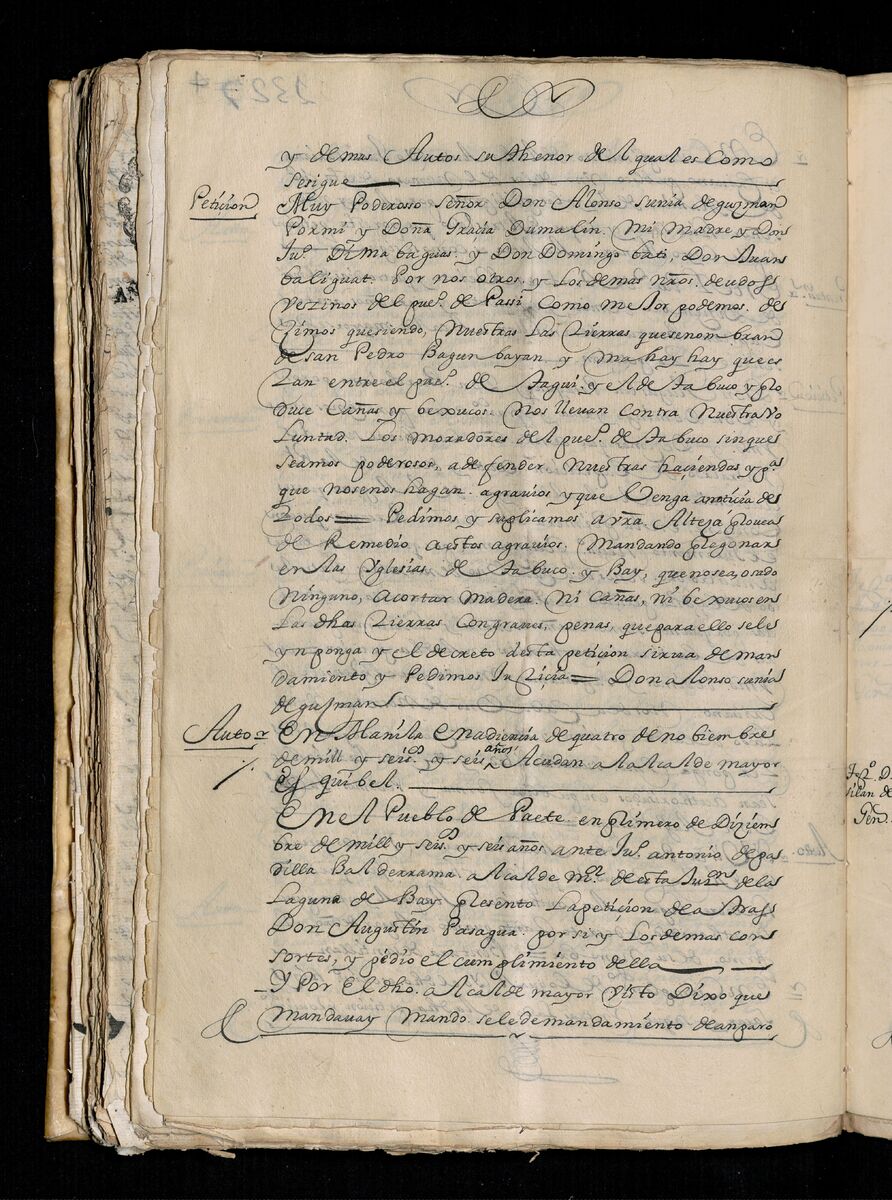 y demas Autos su thenor del qual es Como
sesigue
Peticion
Muy Poderosso Señor Don Alonso sunia de guzman
Por mi y Doña Gracia Dumalin. Mi Madre y Don
Juº. Dimabaguas. y Don Domingo bati, Don Juan
baliguat. Por nos otros, y Los demas nrõs. deudos
Vezinos del pueº. de Passi. Como mejor podemos. de
Zimos quesiendo, Nuestras Las tierras quesenombran
de san Pedro Bagunbayan. y Mahay hay que es
tan entre el pueº. de Taguì. y el de tabuco y plo
duce Cañas y bexucos. Nos llevan Contra Nuestra Vo
luntad. Los moradores del pueº. de tabuco sin que
seamos poderosos, a defender. Nuestras haçiendas y pª
que no senos hagan. agravios y que benga a noticia de
todos = Pedimos y suplicamos a vrã. Alteza plouea
de Remedio a estos agravios. Mandando plegonar
en las Yglesias de tabuco y Bay, que no sea, osado
Ninguno, acortar madera. Ni Cañas, ni bexucos en
Las dhas tierras Congraves, penas, que para ello sele
ynponga y el decreto desta petiçion sirua de man
damiento y Pedimos Justiçia = Don alonso sunia
de guzman
Auto
En Manila en adiençia de quatro de nobiembre
de mill y seisº. y seis años. Acudan al alcalde mayor
Esquibel.
En el Pueblo de Paete. en plimero de Diziem
bre de mill y seisº. y seis años. ante Juº. antonio de pa
dilla Balderrama. alcalde mºr de esta Jurºn de la
Laguna de Bay plesento La peticion de a tras
Don Augustin Pasagua. por si y Los demas con
sortes, y pedio el cumplimiento della
Y Por El dho. alcalde mayor visto Dixo que
Mandaua y Mando. sele de mandamiento de anparo